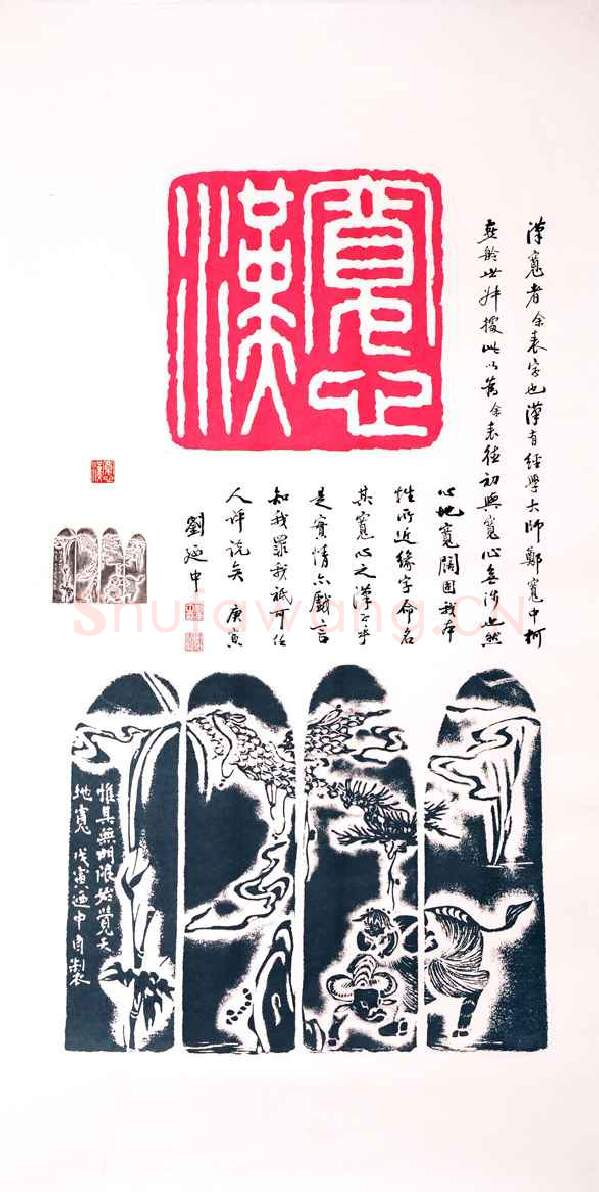 寬心
漢
漢寬者余表字也漢有經學大師鄭寬中柯
於此并據此以為余表德初與寬心無涉也然
心地寬闊固我本
性所近緣字命名
其寬心之漢乎
是實情亦戲言
知我罪我祇可任
人评说矣 庚寅
劉迺中
惟其無期限始覺天
地寬 戊寅迺中自製
Shufawang.CN